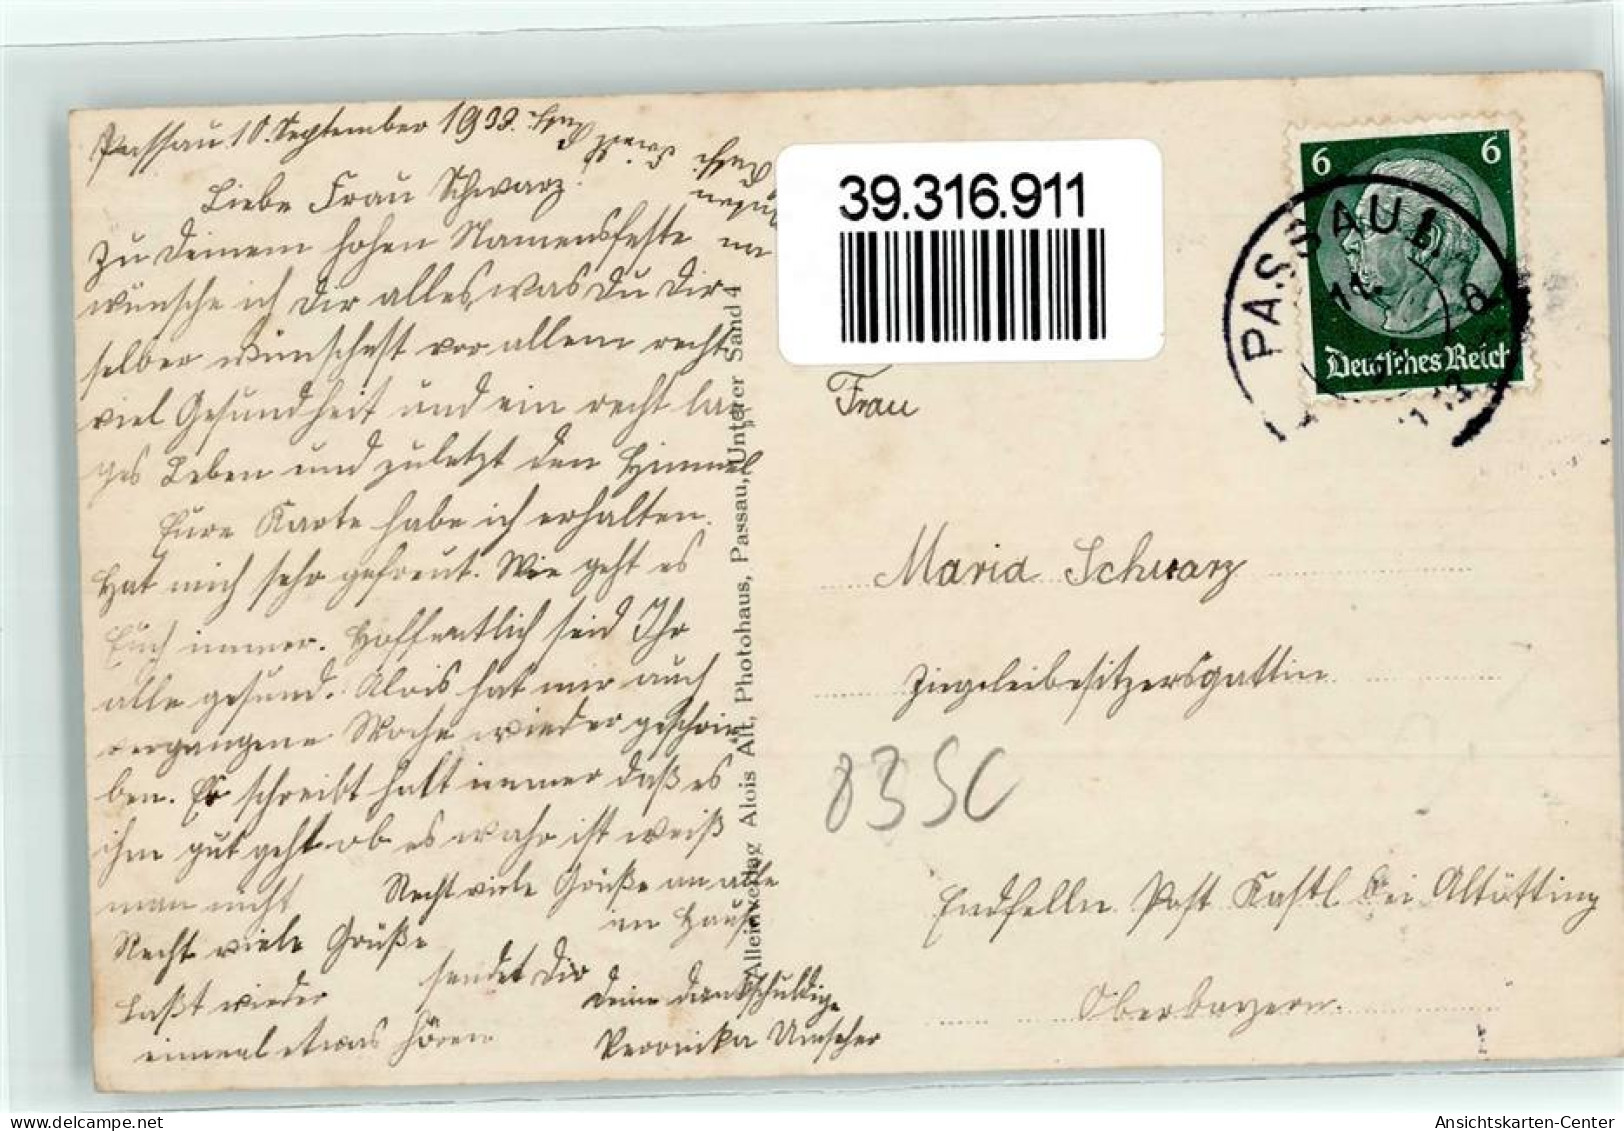 Passau 10. September 1938.
Liebe Frau Schwarz!
Zu Deinem hohen Namensfeste
wünsche ich Dir alles, was Du Dir
selber wünschest vor allem recht
viel Gesundheit und ein recht lan
ges Leben und zuletzt den Himmel
Eure Karte habe ich erhalten.
Hat mich sehr gefreut. Wie geht es
Euch immer. Hoffentlich seid Ihr
alle gesund. Alois hat mir auch
vergangene Woche wieder geschrie
ben. Er schreibt halt immer daß es
ihm gut geht ob es wahr ist weiß
man nicht
Recht viele Grüße an alle
im Hause
Recht viele Grüße
sendet Dir
Deine dankschuldige
Veronika
Laßt wieder
einmal etwas hören
Alleinverlag Alois Alt, Photohaus, Passau, Unterer Sand 4
39.316.911
6 6
Deutsches Reich
PASSAU 1
11.
Frau
Maria Schwarz
Ziegeleibesitzersgattin
Endfelln Post Kastl bei Altötting
Oberbayern.
Ansichtskarten-Center